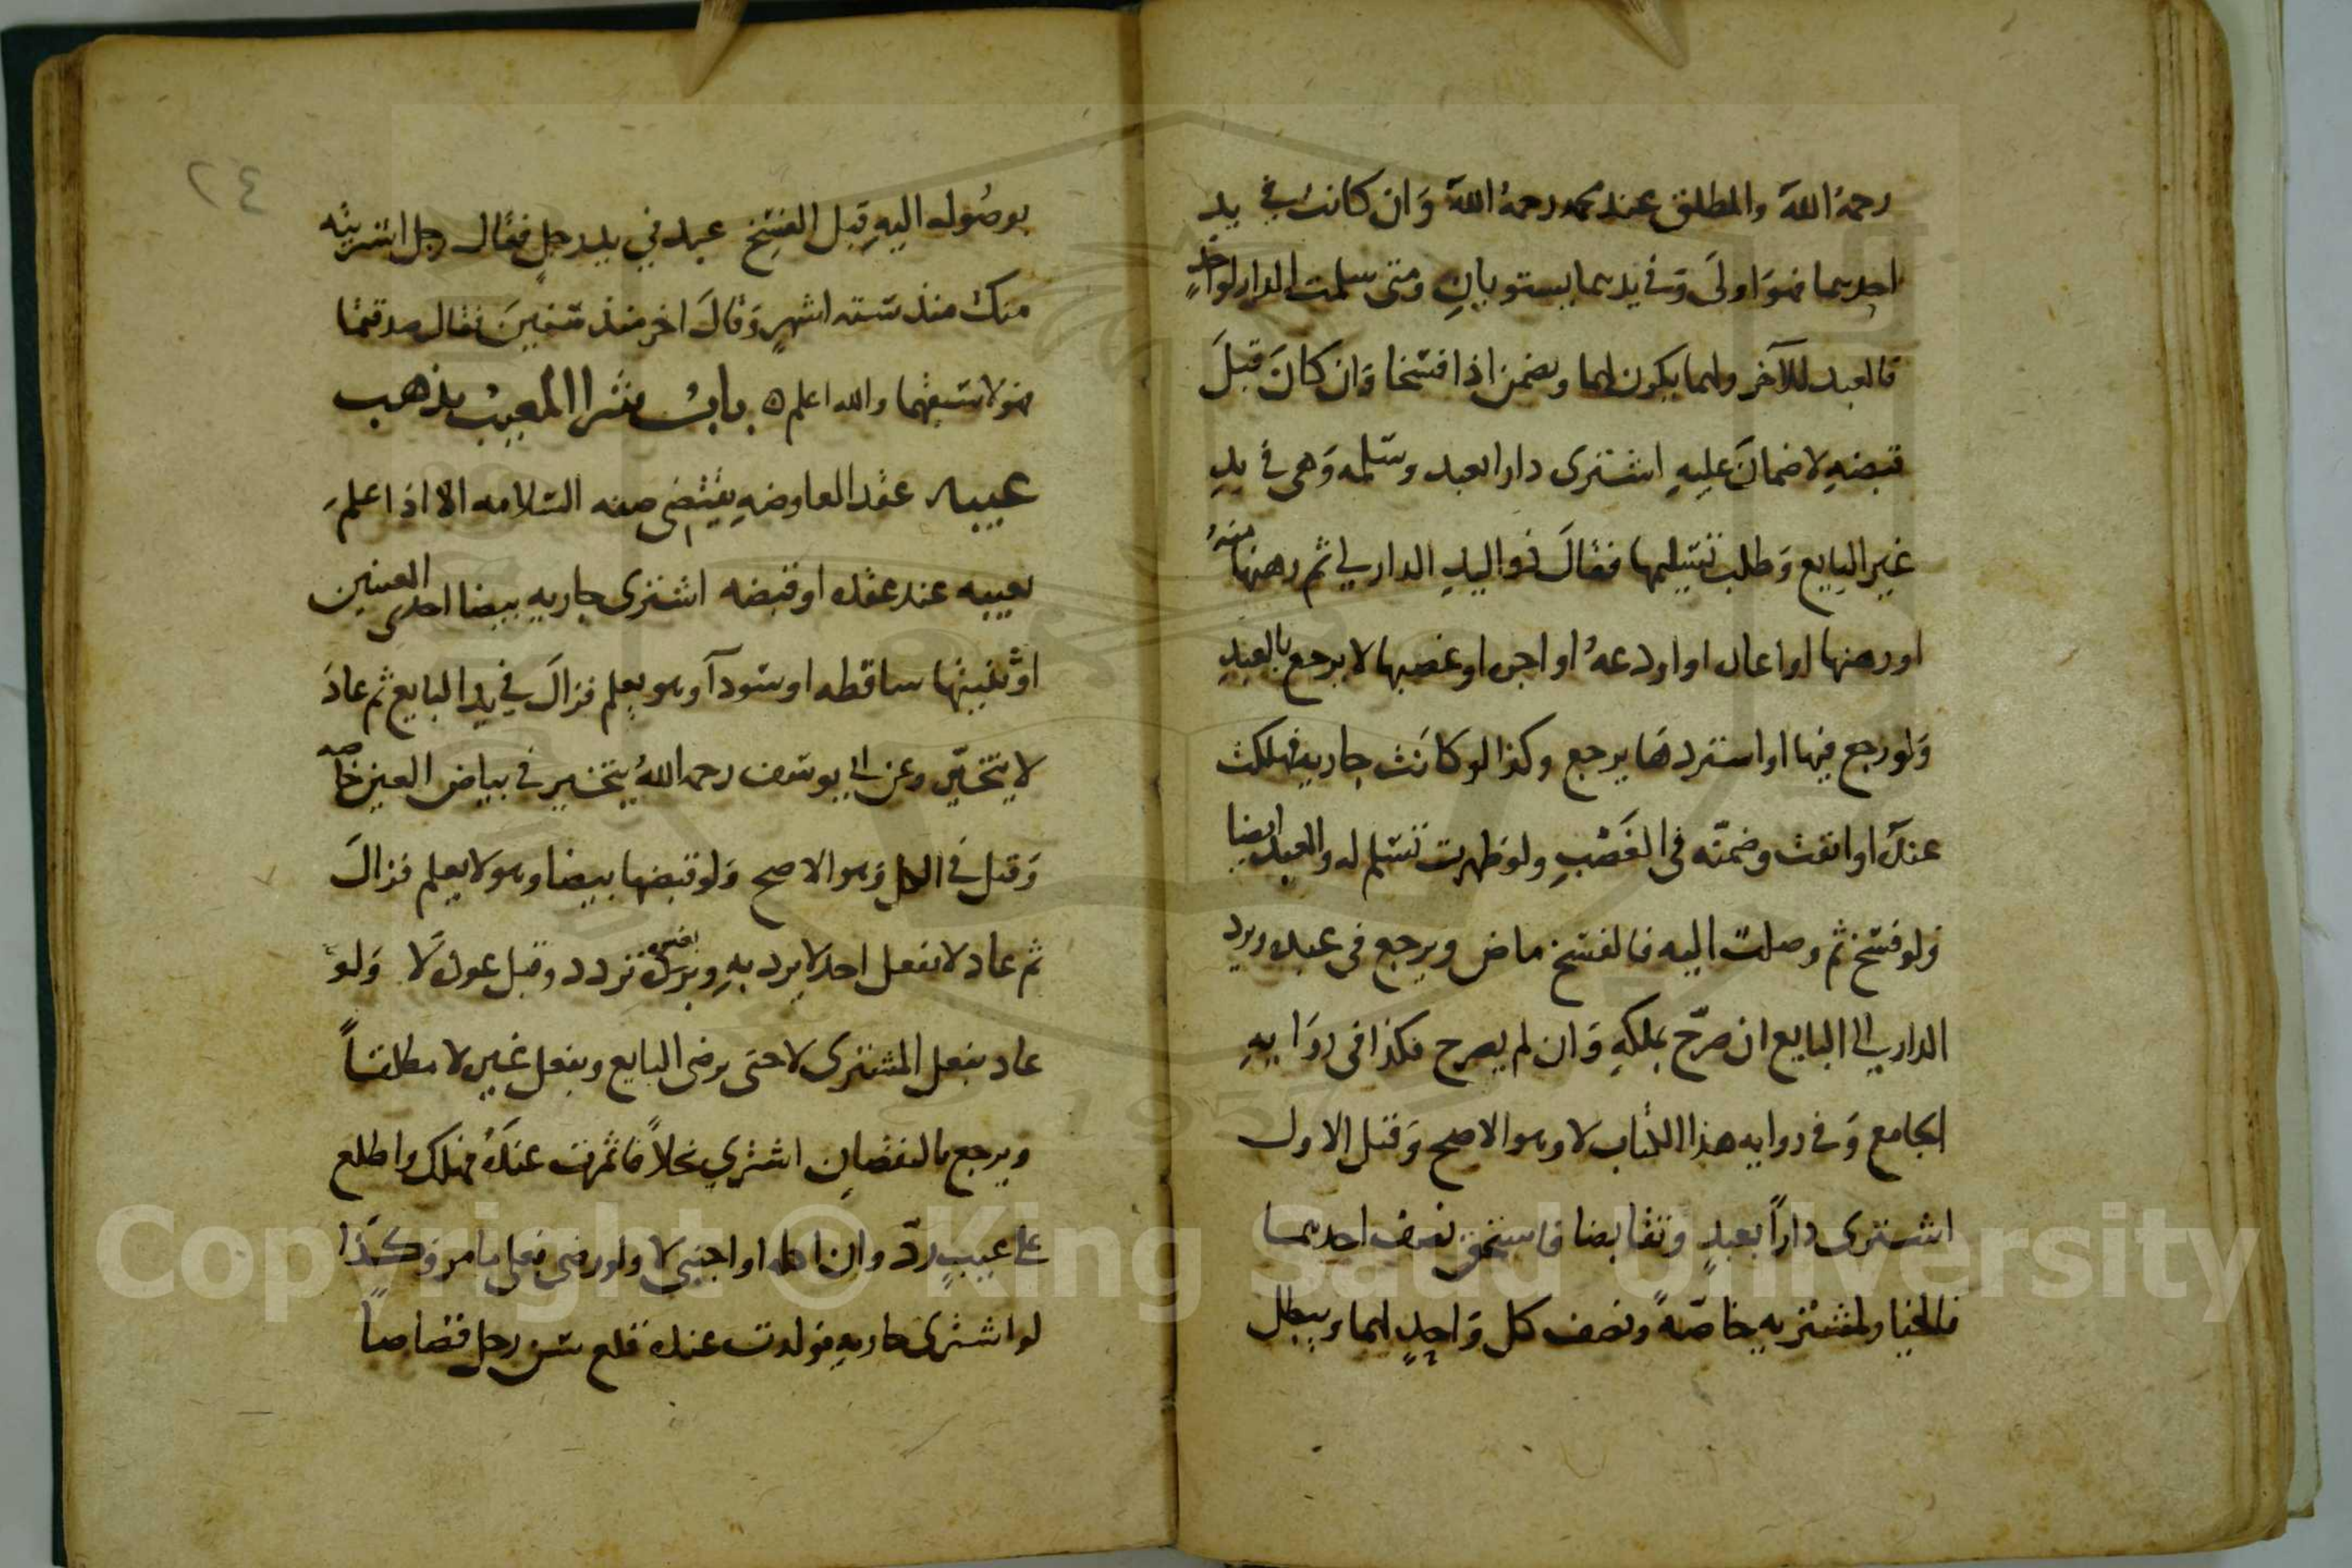 رحمهُ اللهَ والمطلق عند محمد رحمهُ اللهَ وَان كانت في يد
احدهما فهوَ اولىَ وَفي يديهما يستويانِ ومتى سلمت الدار لواحدٍ
فالعبد للآخر ولهما يكون لهما ويضمن اذا افتسخا وَان كانَ قبلَ
قبضهِ لا ضمانَ عليهِ اشترى دارا بعبد وسلمه وَهى في يدِ
غير البايع وَطلب تسليمها فقالَ ذو اليدِ الدار لي ثم رهنها منهُ
او رهنها او اعار او اودعهُ او اجر او غصبها لا يرجع بالعبدِ
وَلو رجع فيها او استردهَا يرجع وكذا لو كانَت جاريه فهلكت
عندَه او ابقت وضمنّه في الغَصْبِ ولو ظهرت تسلم له والعبد ايضا
وَلو فسخ ثم وصلت اليه فالفسخ ماض ويرجع فى عبده ويرد
الدار الى البايع ان صرّح بملكهِ وَان لم يصرح فكذا فى روَايهِ
الجامع وَفى روايه هذا الكتاب لا وهو الاصح وَقيل الاول
اشترى داراً بعبدٍ وتقابضا فاستحق نصف احدهما
فالخيار لمشتريه خاصّهً ونصف كل وَاحدٍ لهما ويبطل
٢٤
بوصُوله اليهِ قبل الفسخِ عبد في يد رجلٍ فقال رجل اشتريته
منك منذ ستة اشهرٍ وَقالَ اخر منذ سنتينَ فقال صدقتما
فهو لاسبقهما والله اعلم ه بابُ شرا المعيبْ يذهب
عيبه عقد المعاوضهِ يقتضى صفه السلامه الا اذا علمَ
بعيبه عند عقده او قبضه اشترى جاريه بيضا احدى العينين
اوْ ثنيتها ساقطه او سَودآ وهو يعلم فزالَ في يد البايع ثم عادَ
لا يتخيّر وعن ابي يوسَف رحمه اللهُ يتخير في بياض العين خاصه
وَقيل في الكل وَهو الاصح وَلو قبضها بيضا وهو لا يعلم فزالَ
ثم عاد لا بفعل احد لا يرد بهِ تردد وقيل عوده لَا وَلو
عاد بفعل المشترى لا حتى يرضى البايع وبفعل غيره لا مطلقاً
ويرجع بالنقصانِ اشتري نخلاً فاثمرت عندَهُ فهلك واطلع
على عيبٍ ردّ وان اكله او اجنبى لا ولو رضى فعلى ما مر وَكذَا
لو اشترى جاريهِ فولدت عنده قلع سن رجل قصاصاً